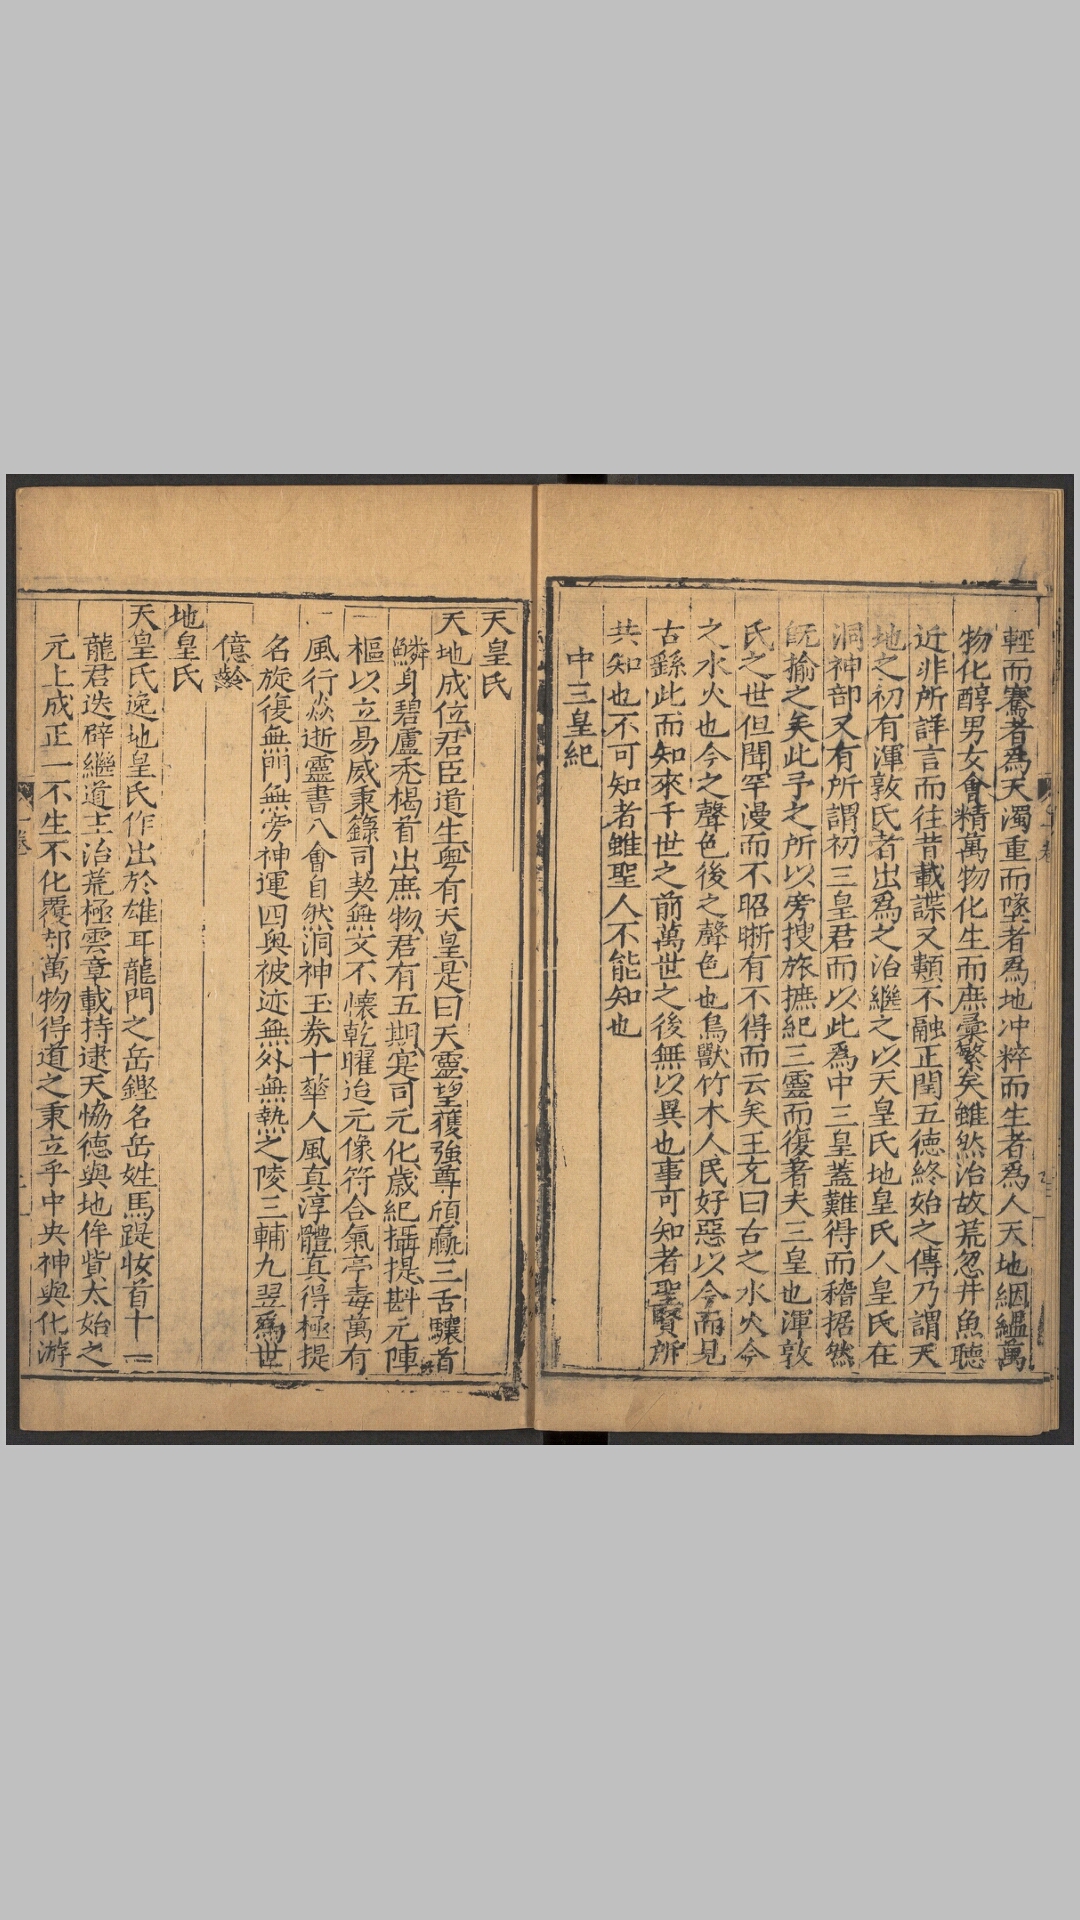 輕而騫者為天濁重而墜者為地冲粹而生者為人天地絪縕萬
物化醇男女會精萬物化生而庶彚繁矣雖然治故荒忽井魚聴
近非所詳言而往昔載諜又類不融正閏五德終始之傳乃謂天
地之初有渾敦氏者出為之治繼之以天皇氏地皇氏人皇氏在
洞神部又有所謂初三皇君而以此為中三皇蓋難得而稽据然
旣揄之矣此予之所以旁搜旅摭紀三靈而復著夫三皇也渾敦
氏之世但聞罕漫而不昭晣有不得而云矣王充曰古之水火今
之水火也今之聲色後之聲色也鳥獸竹木人民好惡以今而見
古繇此而知來千世之前萬世之後無以異也事可知者聖賢所
共知也不可知者雖聖人不能知也
中三皇紀
天皇氏
天地成位君臣道生粤有天皇是曰天靈望獲強尊頎羸三舌驤首
鱗身碧盧禿楬首出庶物君有五期寔司元化歲紀攝提斟元陳
樞以立易威秉籙司契無文不懷乾曜迨元像符合氣亭毒萬有
風行焱逝靈書八會自然洞神玉券十華人風真淳體真得極提
名旋復無門無旁神運四奥被迹無外無熱之陵三輔九翌為世
億齡
地皇氏
天皇氏逸地皇氏作出於雄耳龍門之岳鏗名岳姓馬踶妝首十一
龍君迭辟繼道主治荒極雲章載持逮天恊德與地侔貲太始之
元上成正一不生不化覆却萬物得道之秉立乎中央神與化游